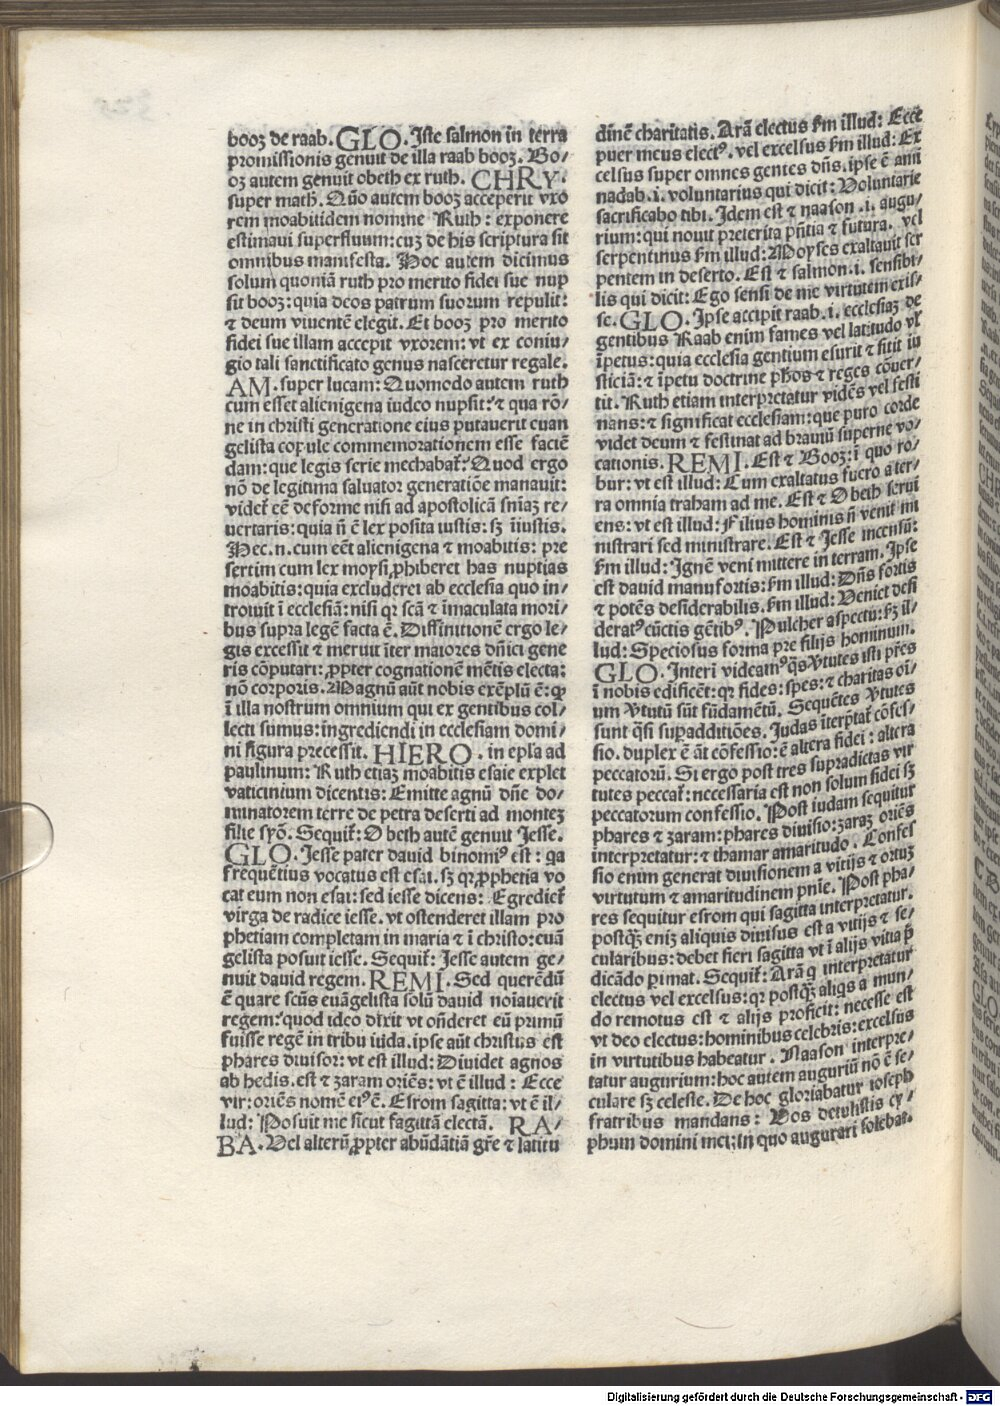 booz de raab. GLO. Iste salmon in terra
promissionis genuit de illa raab booz. Bo/
oz autem genuit obeth ex ruth. CHRY.
super math. Q̄uo autem booz acceperit vxo
rem moabitidem nomine Ruth: exponere
estimaui superfluum: cuz de his scriptura sit
omnibus manifesta. Hoc autem dicimus
solum quoniā ruth pro merito fidei sue nup
sit booz: quia deos patrum suorum repulit:
⁊ deum viuentē elegit. Et booz pro merito
fidei sue illam accepit vxorem: vt ex coniu/
gio tali sanctificato genus nasceretur regale.
AM. super lucam: Quomodo autem ruth
cum esset alienigena iudeo nupsit: ⁊ qua rō/
ne in christi generatione eius putauerit euan
gelista copule commemorationem esse faciē
dam: que legis serie mechabat̄: Quod ergo
nō de legitima saluator generatiōe manauit:
videt̄ eē deforme nisi ad apostolicā sniāz re/
uertaris: quia n̄ ē lex posita iustis: sꝫ īiustis.
Hec .n. cum eēt alienigena ⁊ moabitis: pre
sertim cum lex moysi ꝓhiberet has nuptias
moabitis: quia excluderei ab ecclesia quo in/
troiuit ī ecclesiā: nisi qꝛ scā ⁊ īmaculata mori/
bus supra legē facta ē. Diffinitionē ergo le/
gis excessit ⁊ meruit īter maiores dn̄ici gene
ris cōputari: ꝓpter cognationē mētis electa:
nō corporis. Magnū aūt nobis exēplū ē: qꝛ
ī illa nostrum omnium qui ex gentibus col/
lecti sumus: īngrediendi in ecclesiam domi/
ni figura precessit. HIERO. in epla ad
paulinum: Ruth etiaz moabitis esaie explet
vaticinium dicentis: Emitte agnū dn̄e do/
minatorem terre de petra deserti ad montez
filie syō. Sequit̄: Obeth autē genuit Iesse.
GLO. Iesse pater david binomiꝰ est: qa
frequētius vocatus est esai. sꝫ qꝛ ꝓphetia vo
cat eum non esai: sed iesse dicens: Egrediet̄
virga de radice iesse. vt ostenderet illam pro
phetiam completam in maria ⁊ ī christo: euā
gelista posuit iesse. Sequit̄: Iesse autem ge/
nuit dauid regem. REMI. Sed querēdū
ē quare scūs euāgelista solū dauid noīauerit
regem: quod ideo dixit vt on̄deret eū primū
fuisse regē in tribu iuda. ipse aūt christus est
phares diuisor: vt est illud: Diuidet agnos
ab hedis. est ⁊ zaram oriēs: vt ē illud: Ecce
vir: oriēs nomē eiꝰ ē. Esrom sagitta: vt ē il/
lud: Posuit me sicut sagittā electā. RA/
BA. Uel alterū ꝓpter abūdātiā gr̄e ⁊ latitu
dinē charitatis. Arā electus s̄m illud: Ecce
puer meus electꝰ. vel excelsus s̄m illud: Ex
celsus super omnes gentes dn̄s. ipse ē ami
nadab .i. voluntarius qui dicit: Voluntarie
sacrificabo tibi. Idem est ⁊ naason .i. augu/
rium: qui nouit preterita pn̄tia ⁊ futura. vel
serpentinus s̄m illud: Moyses exaltauit ser
pentem in deserto. Est ⁊ salmon .i. sensibi/
lis qui dicit: Ego sensi de me virtutem exis/
se. GLO. Ipse accipit raab .i. ecclesiaz de
gentibus Raab enim fames vel latitudo vl̄
īpetus: quia ecclesia gentium esurit ⁊ sitit iu
sticiā: ⁊ īpetu doctrine ph̄os ⁊ reges cōuer/
tit. Ruth etiam interpretatur vidēs vel festi
nans: ⁊ significat ecclesiam: que puro corde
videt deum ⁊ festinat ad brauiū superne vo/
cationis. REMI. Est ⁊ Booz: ī quo ro/
bur: vt est illud: Cum exaltatus fuero a ter/
ra omnia traham ad me. Est ⁊ Obeth serui
ens: vt est illud: Filius hominis n̄ venit mi
nistrari sed ministrare. Est ⁊ Iesse incensū:
s̄m illud: Ignē veni mittere in terram. Ipse
est dauid manu fortis: s̄m illud: Dn̄s fortis
⁊ potēs desiderabilis. s̄m illud: Ueniet desi
deratꝰ cūctis gētibꝰ. Pulcher aspectu: s̄z il/
lud: Speciosus forma pre filijs hominum.
GLO. Interī videamꝰ q̄s v̄tutes isti pr̄es
ī nobis edificēt: qꝛ fides: spes: ⁊ charitas oī/
um v̄tutū sūt fūdamētū. Sequētes v̄tutes
sunt q̄si supradditiōes. Iudas īterp̄tat̄ cōfes/
sio. duplex ē āt cōfessio: ē altera fidei: altera
peccatorū. Si ergo post tres supradictas vir
tutes peccat̄: necessaria est non solum fidei sꝫ
peccatorum confessio. Post iudam sequitur
phares ⁊ zaram: phares diuisio: zaraz oriēs
interpretatur: ⁊ thamar amaritudo. Confes
sio enim generat diuisionem a vitijs ⁊ ortuz
virtutum ⁊ amaritudinem pnīe. Post pha/
res sequitur esrom qui sagitta interpretatur.
postqꝫ eniz aliquis diuisus est a vitijs ⁊ se/
cularibus: debet fieri sagitta vt ī alijs vitia p̄
dicādo perimat. Sequit̄: Arā q̄ interpretatur
electus vel excelsus: qꝛ postqꝫ aliqs a mun/
do remotus est ⁊ alijs proficit: necesse est
vt deo electus: hominibus celebris: excelsus
in virtutibus habeatur. Naason interpre/
tatur augurium: hoc autem auguriū nō ē se/
culare sꝫ celeste. De hoc gloriabatur ioseph
fratribus mandans: Uos detulistis cy/
phum domini mei: in quo augurari solebat.
Digitalisierung gefördert durch die Deutsche Forschungsgemeinschaft - DFG